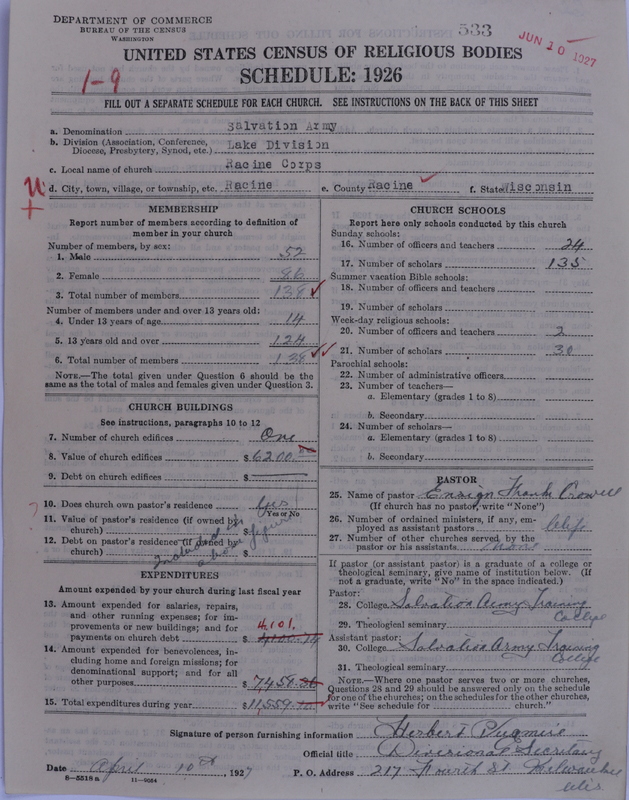 DEPARTMENT OF COMMERCE
BUREAU OF THE CENSUS
WASHINGTON
533
JUN 10 1927
UNITED STATES CENSUS OF RELIGIOUS BODIES
SCHEDULE: 1926
1-9
FILL OUT A SEPARATE SCHEDULE FOR EACH CHURCH. SEE INSTRUCTIONS ON THE BACK OF THIS SHEET
a. Denomination Salvation Army
b. Division (Association, Conference, Diocese, Presbytery, Synod, etc.) Lake Division
c. Local name of church Racine Corps
d. City, town, village, or township, etc. Racine e. County Racine f. State Wisconsin
MEMBERSHIP
Report number of members according to definition of
member in your church
Number of members, by sex:
1. Male 52
2. Female 86
3. Total number of members 138
Number of members under and over 13 years old:
4. Under 13 years of age 14
5. 13 years old and over 124
6. Total number of members 138
NOTE.—The total given under Question 6 should be the
same as the total of males and females given under Question 3.
CHURCH BUILDINGS
See instructions, paragraphs 10 to 12
7. Number of church edifices One
8. Value of church edifices $ 6200
9. Debt on church edifices $
10. Does church own pastor's residence Yes
Yes or No
11. Value of pastor's residence (if owned by
church) $
12. Debt on pastor's residence (if owned by
church) $
Included in above figure
EXPENDITURES
Amount expended by your church during last fiscal year
13. Amount expended for salaries, repairs,
and other running expenses; for im-
provements or new buildings; and for
payments on church debt $ 4,101.
14. Amount expended for benevolences, in-
cluding home and foreign missions; for
denominational support; and for all
other purposes $ 7,458.
15. Total expenditures during year $ 11,559.
CHURCH SCHOOLS
Report here only schools conducted by this church
Sunday schools:
16. Number of officers and teachers 24
17. Number of scholars 135
Summer vacation Bible schools:
18. Number of officers and teachers
19. Number of scholars
Week-day religious schools:
20. Number of officers and teachers 2
21. Number of scholars 30
Parochial schools:
22. Number of administrative officers
23. Number of teachers—
a. Elementary (grades 1 to 8)
b. Secondary
24. Number of scholars—
a. Elementary (grades 1 to 8)
b. Secondary
PASTOR
25. Name of pastor Ensign Frank Crowell
(If church has no pastor, write "None")
26. Number of ordained ministers, if any, em-
ployed as assistant pastors Wife
27. Number of other churches served by the
pastor or his assistants none
If pastor (or assistant pastor) is a graduate of a college or
theological seminary, give name of institution below. (If
not a graduate, write "No" in the space indicated.)
Pastor:
28. College Salvation Army Training College
29. Theological seminary
Assistant pastor:
30. College Salvation Army Training College
31. Theological seminary
NOTE.—Where one pastor serves two or more churches,
Questions 28 and 29 should be answered only on the schedule
for one of the churches; on the schedules for the other churches,
write "See schedule for church."
Signature of person furnishing information Herbert Pugmire
Official title Divisional Secretary
Date April 10th, 1927 P. O. Address 217 Fourth St Milwaukee Wis
8-5518a 11-9064